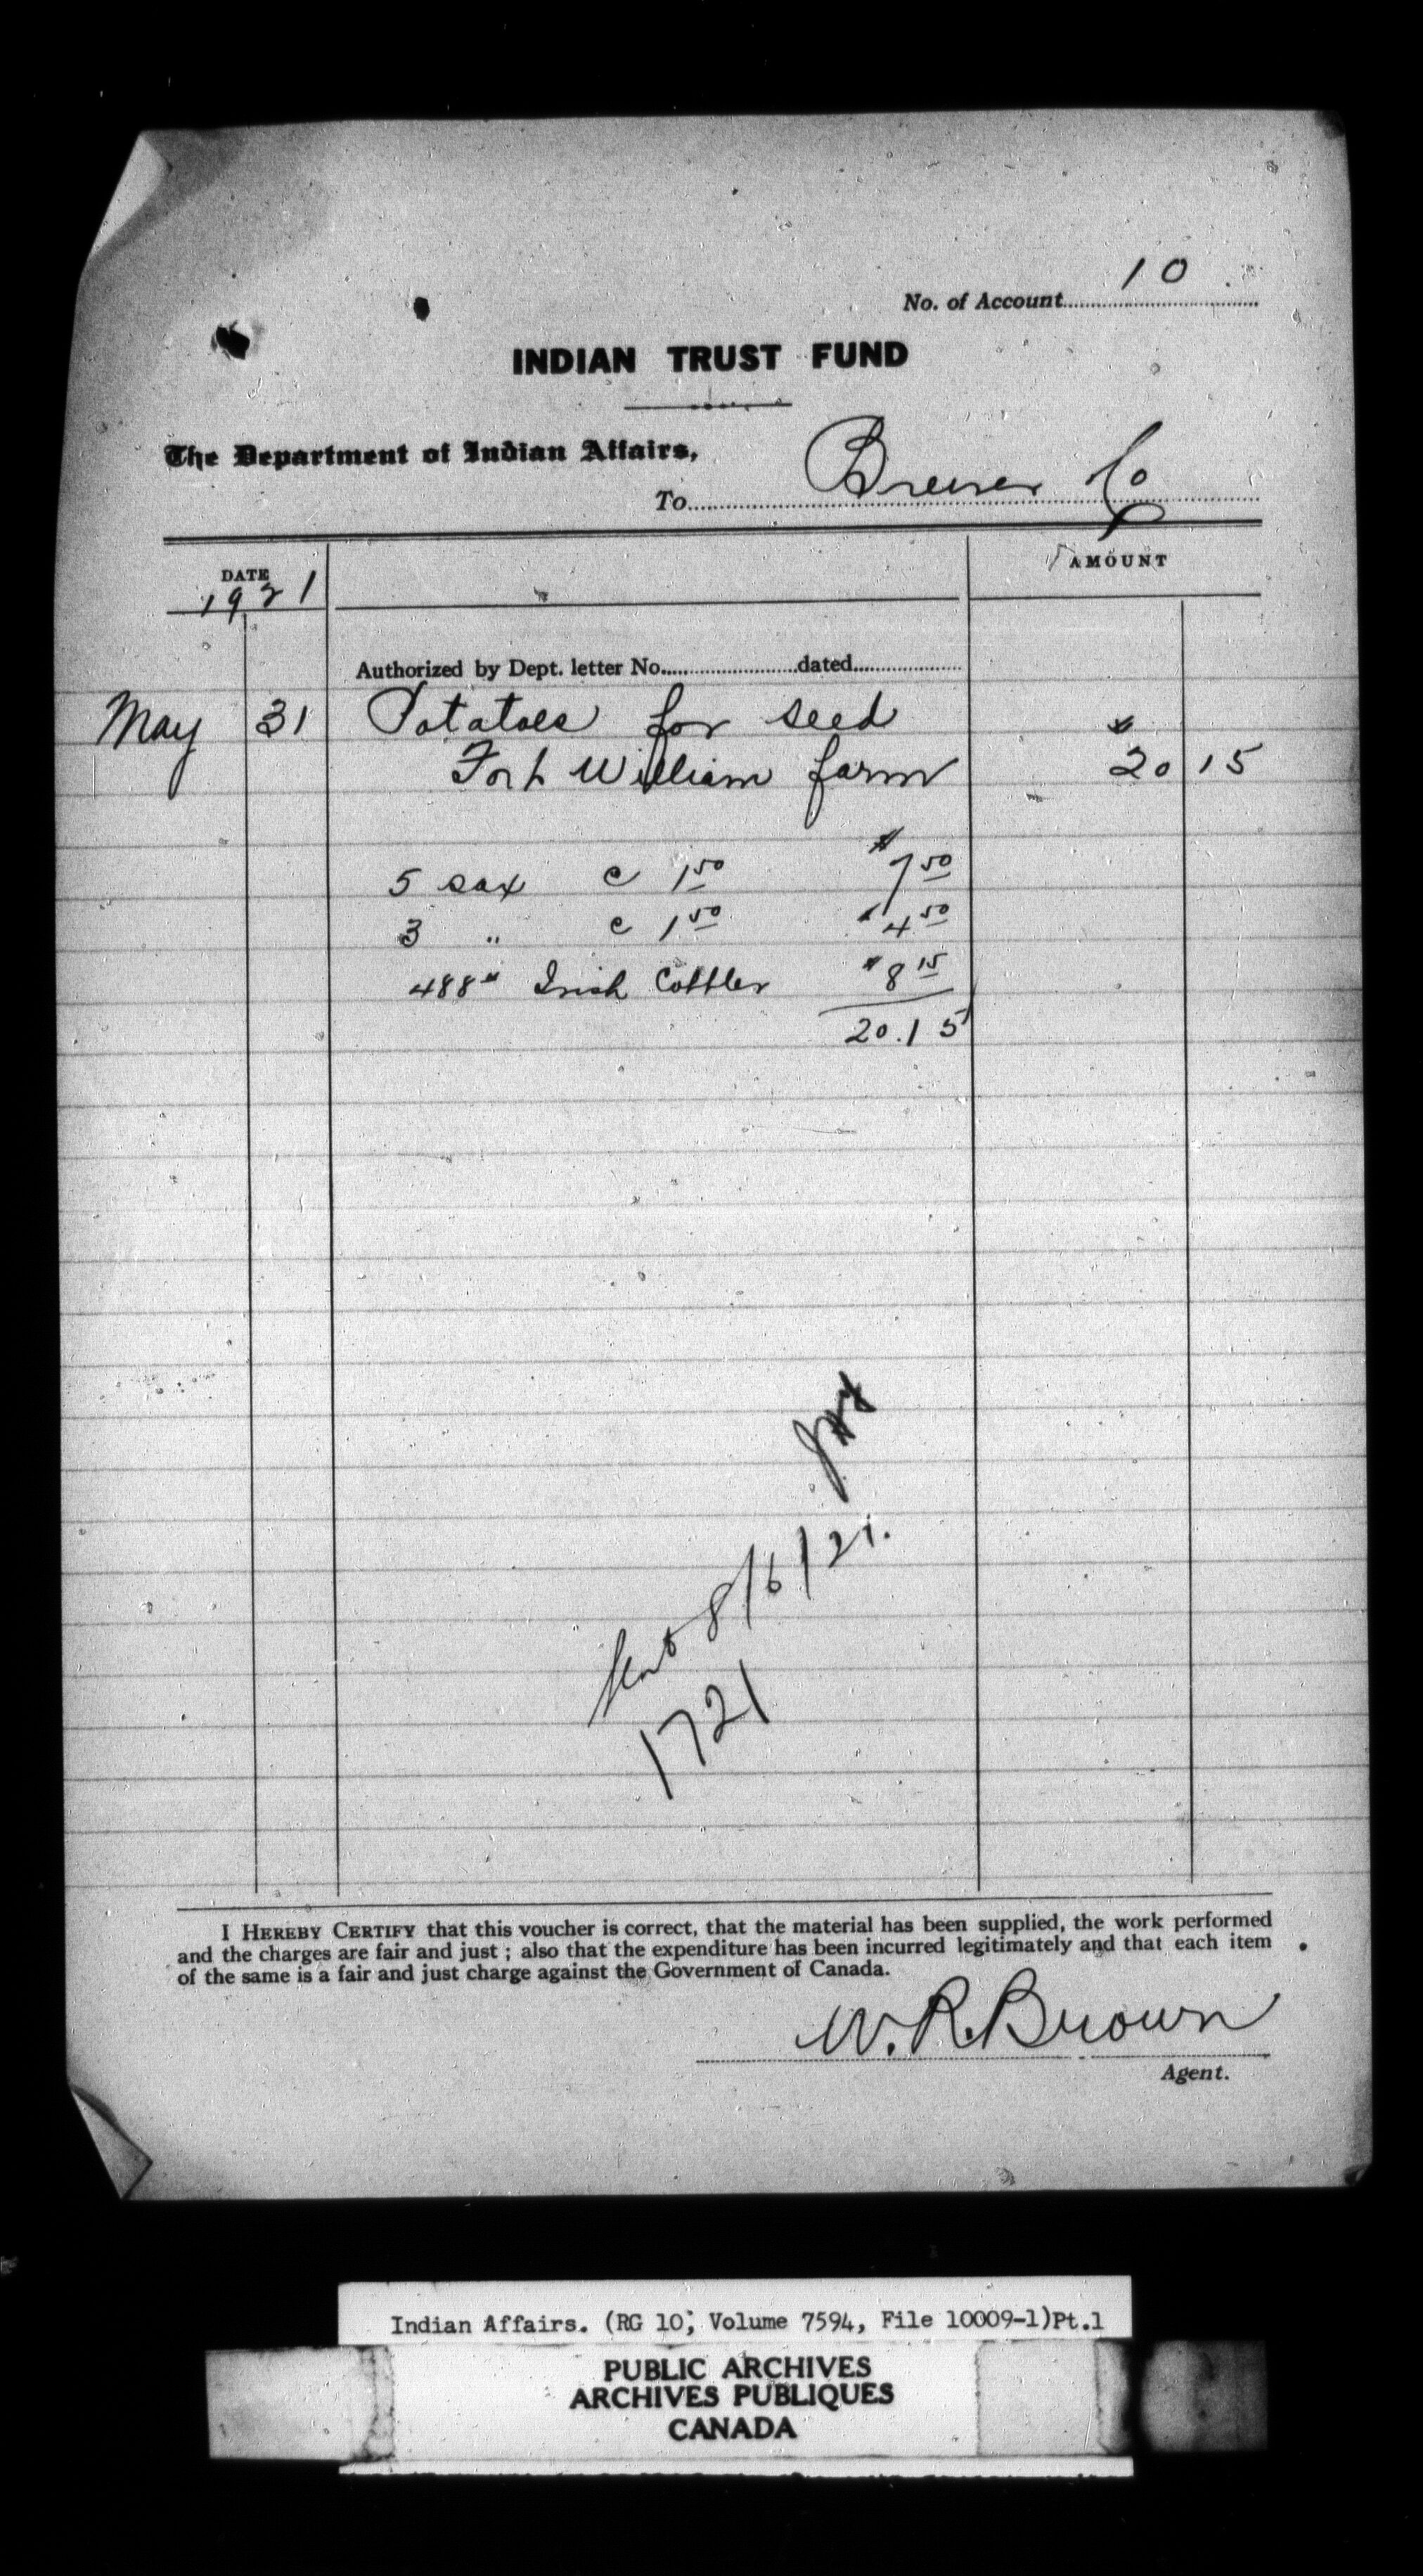 No. of Account 10
INDIAN TRUST FUND
The Department of Indian Affairs,
To Brewer Co
DATE
AMOUNT
1921
Authorized by Dept. letter No. dated
May 31 Potatoes for seed $
Fort William farm 20 15
5 sax @ 1.50 $7.50
3 " @ 1.50 $4.50
488# Irish Cobbler $8.15
20.15
Sent 8/6/21.
1721
I HEREBY CERTIFY that this voucher is correct, that the material has been supplied, the work performed
and the charges are fair and just ; also that the expenditure has been incurred legitimately and that each item
of the same is a fair and just charge against the Government of Canada.
W.R. Brown
Agent.
Indian Affairs. (RG 10, Volume 7594, File 10009-1)Pt.1
PUBLIC ARCHIVES
ARCHIVES PUBLIQUES
CANADA